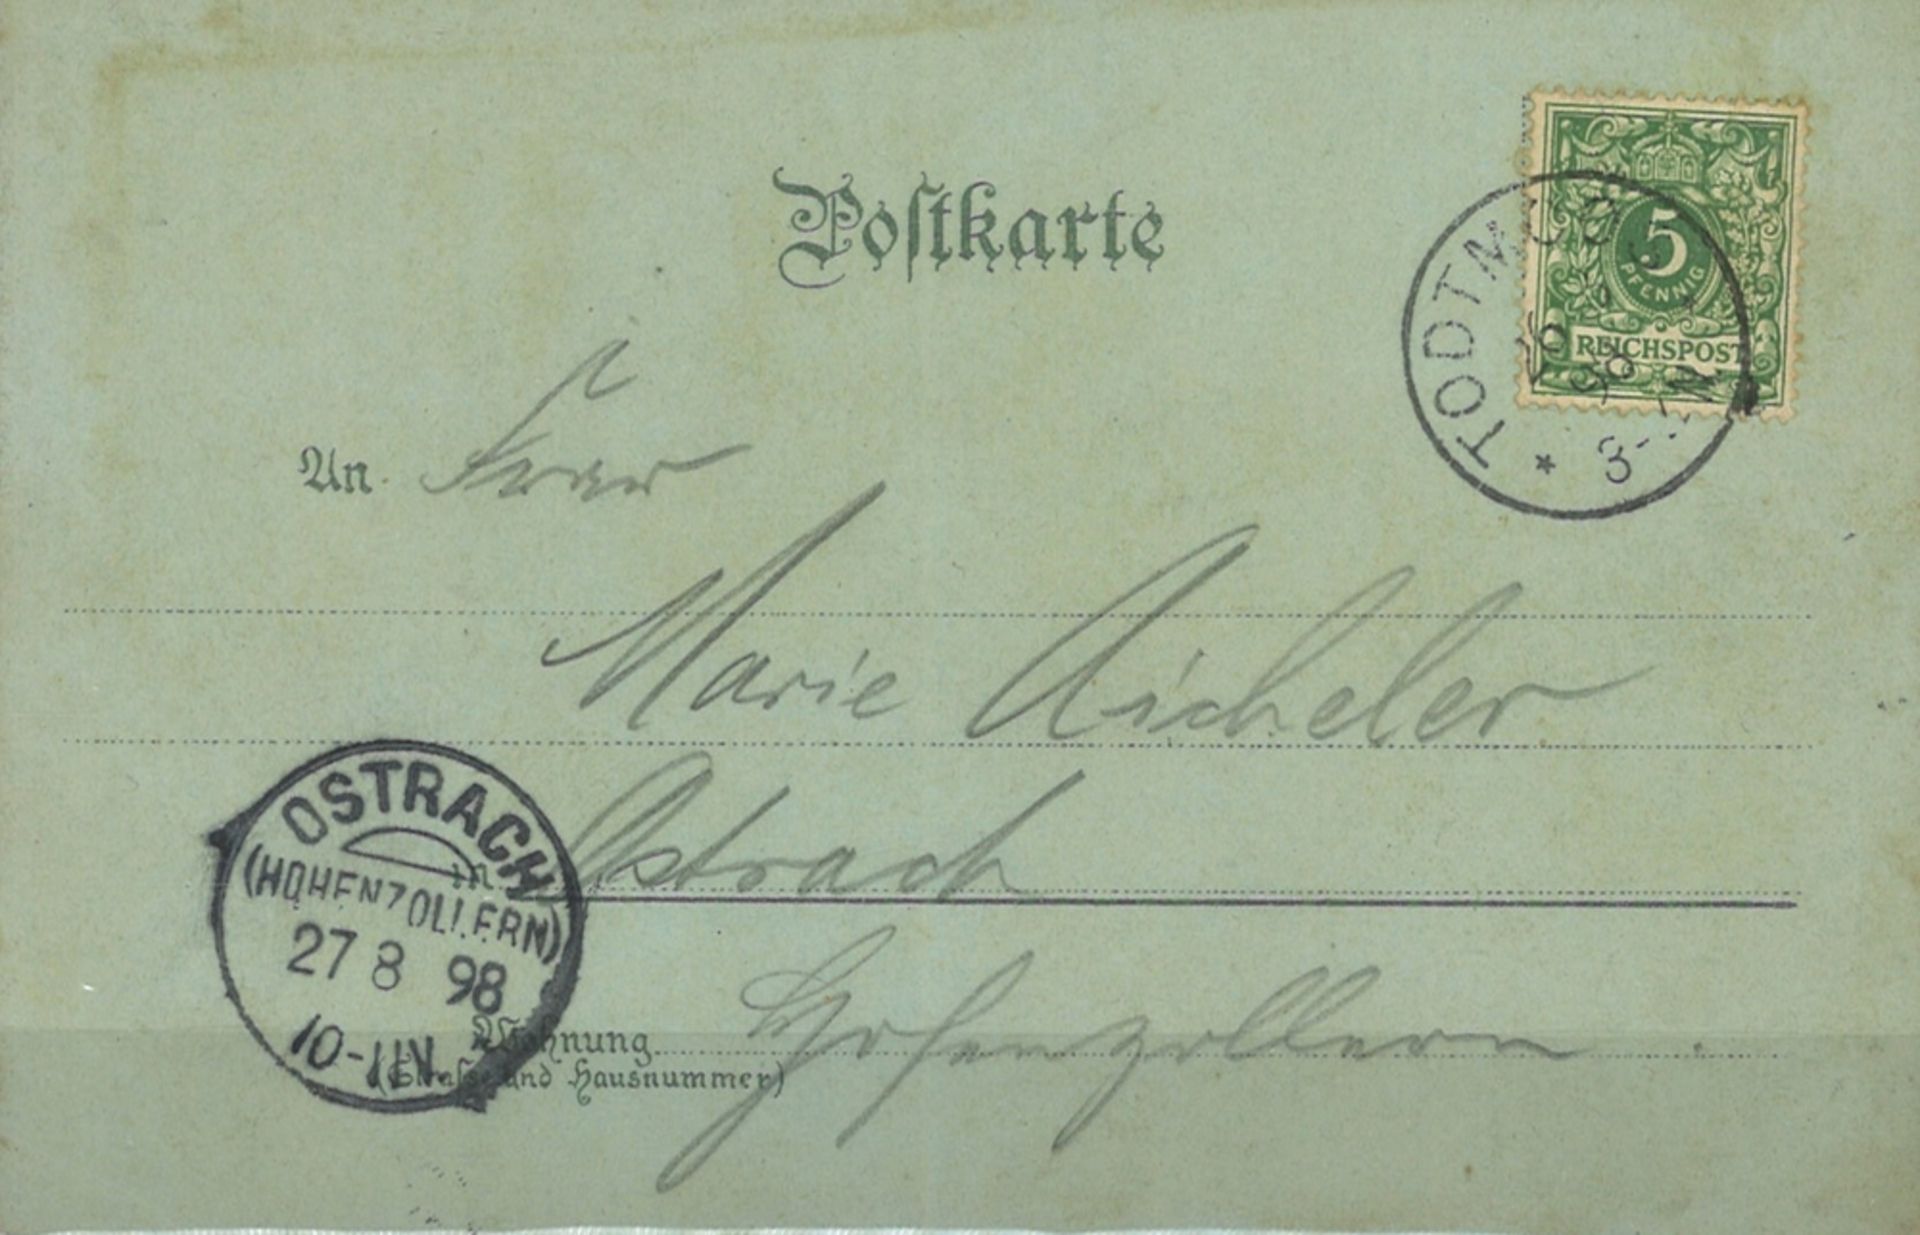 Postkarte
5
PFENNIG
REICHSPOST
TODTMOOS
26
98
3-
An Frau
Marie Aicheler
in Ostrach
Hohenzollern
Wohnung
(Strasse und Hausnummer)
OSTRACH
(HOHENZOLLERN)
27 8 98
10-11N.